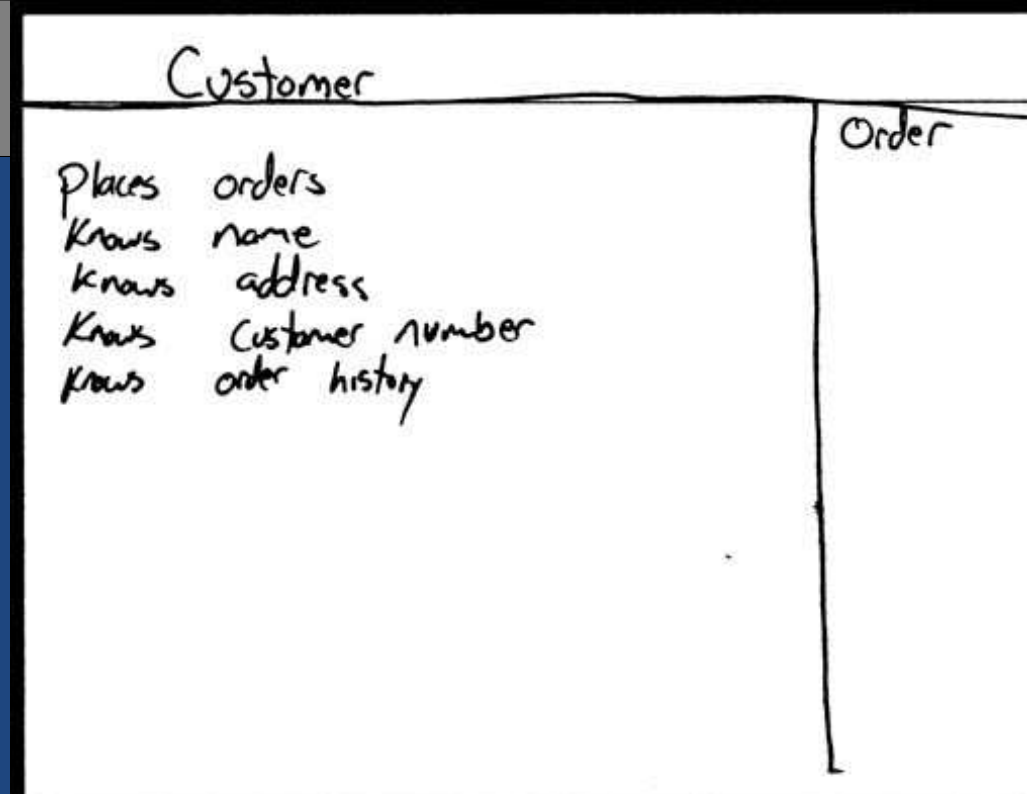 Customer
Order
Places orders
Knows name
Knows address
Knows Customer number
Knows order history